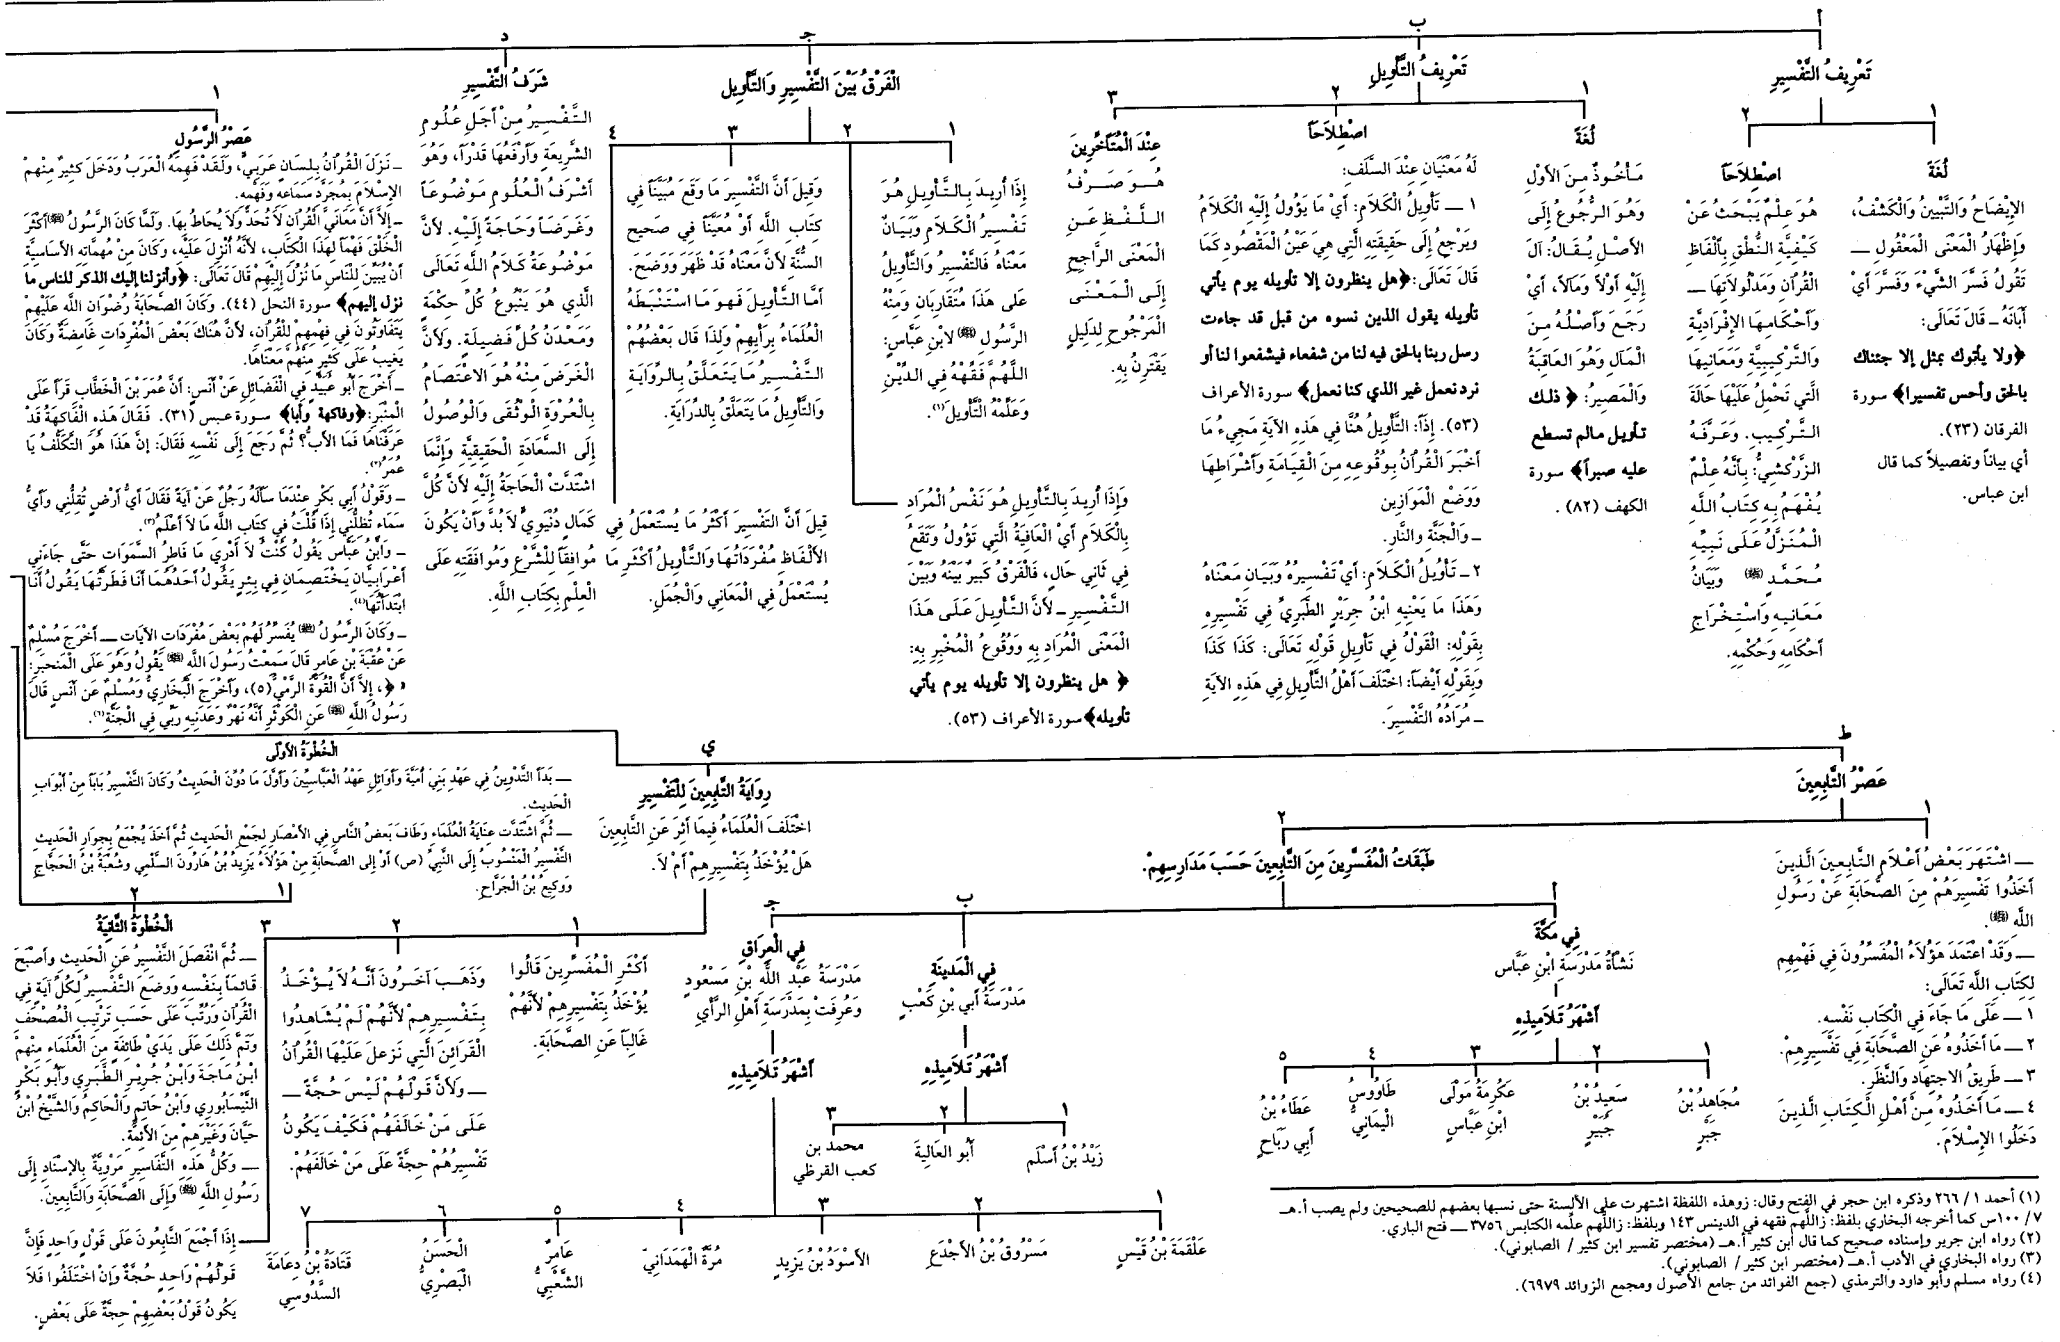 أ
تَعْرِيفُ التَّفْسِيرِ
١
لُغَةً
الإِيْضَاحُ وَالتَّبْيِينُ وَالْكَشْفُ،
وَإِظْهَارُ الْمَعْنَى الْمَعْقُولِ ــ
تَقُولُ فَسَّرَ الشَّيْءَ وَفَسَّرَ أَيْ
أَبَانَهُ ــ قَالَ تَعَالَى:
﴿ولا يأتوك بمثل إلا جئناك
بالحق وأحسن تفسيرا﴾ سورة
الفرقان (٢٣).
أي بياناً وتفصيلاً كما قال
ابن عباس.
٢
اصْطِلاَحاً
هُوَ عِلْمٌ يَبْحَثُ عَنْ
كَيْفِيَّةِ النُّطْقِ بِأَلْفَاظِ
القُرْآنِ وَمَدْلُولاَتِهَا ــ
وَأَحْكَامِهَا الإِفْرَادِيَّةِ
وَالتَّرْكِيبِيَّةِ وَمَعَانِيهَا
الَّتِي تَحْمِلُ عَلَيْهَا حَالَةَ
التَّرْكِيبِ. وَعَرَّفَهُ
الزَّرْكَشِيُّ: بِأَنَّهُ عِلْمٌ
يُفْهَمُ بِهِ كِتَابُ اللَّهِ
الْمُنَزَّلُ عَلَى نَبِيِّهِ
مُحَمَّدٍ ﷺ وَبَيَانُ
مَعَانِيهِ وَاسْتِخْرَاجِ
أَحْكَامِهِ وَحُكْمِهِ.
ب
تَعْرِيفُ التَّأْوِيلِ
١
لُغَةً
مَأْخُوذٌ مِنَ الأَوْلِ
وَهُوَ الرُّجُوعُ إِلَى
الأَصْلِ يُقَالُ: آلَ
إِلَيْهِ أَوْلاً وَمَآلاً، أَيْ
رَجَعَ وَأَصْلُهُ مِنَ
الْمَآلِ وَهُوَ العَاقِبَةُ
وَالْمَصِيرُ: ﴿ ذلك
تأويل مالم تسطع
عليه صبراً﴾ سورة
الكهف (٨٢) .
٢
اصْطِلاَحَاً
لَهُ مَعْنَيَانِ عِنْدَ السَّلَفِ:
١ ــ تَأْوِيلُ الْكَلاَمِ: أَيْ مَا يَؤُولُ إِلَيْهِ الْكَلاَمُ
وَيَرْجِعُ إِلَى حَقِيقَتِهِ الَّتِي هِيَ عَيْنُ الْمَقْصُودِ كَمَا
قَالَ تَعَالَى: ﴿هل ينظرون إلا تأويله يوم يأتي
تأويله يقول الذين نسوه من قبل قد جاءت
رسل ربنا بالحق فيه لنا من شفعاء فيشفعوا لنا أو
نرد نعمل غير الذي كنا نعمل﴾ سورة الأعراف
(٥٣). إِذَاً: التَّأْوِيلُ هُنَّا فِي هَذِهِ الآيَةِ مَجِيءُ مَا
أَخْبَرَ الْقُرْآنُ بِوُقُوعِهِ مِنَ الْقِيَامَةِ وَأَشْرَاطِهَا
وَوَضْعِ الْمَوَازِينِ
ــ وَالْجَنَّةِ والنَّارِ.
٢ ــ تَأْوُيلُ الْكَلاَمِ: أَيْ تَفْسِيرُهُ وَبَيَانِ مَعْنَاهُ
وَهَذَا مَا يَعْنِيهِ ابْنُ جَرِيْرٍ الطَّبَرِيِّ فِي تَفْسِيرِهِ
بِقَوْلِهِ: الْقَوْلُ فِي تَأْوِيلِ قَوْلِهِ تَعَالَى: كَذَا كَذَا
وَبِقَوْلِهِ أَيْضَاً: اخْتَلَفَ أَهْلُ التَّأْوِيلِ فِي هَذِهِ الآيَةِ
ــ مُرَادُهُ التَّفْسِيرَ.
٣
عِنْدَ الْمُتَأَخِّرِينَ
هُـوَ صَـرْفُ
اللَّـفْـظِ عَـنِ
الْمَعْنَى الرَّاجِحِ
إِلَى الْمَعْنَى
الْمَرْجُوحِ لِدَلِيلٍ
يَقْتَرِنُ بِهِ.
جـ
الْفَرْقُ بَيْنَ التَّفْسِيرِ وَالتَّأْوِيلِ
١
إِذَا أُرِيدَ بِالتَّأْوِيلِ هُوَ
تَفْسِيرُ الْكَلاَمِ وَبَيَانُ
مَعْنَاهُ فَالتَّفْسِيرُ وَالتَّأْوِيلُ
عَلَى هَذَا مُتَقَارِبَانِ وَمِنْهُ
الرَّسُولِ ﷺ لاِبْنِ عَبَّاسٍ:
اللَّهُمَّ فَقِّهْهُ فِي الدِّيْنِ
وَعَلِّمْهُ التَّأْوِيلَ(١).
٢
وَإِذَا أُرِيدَ بِالتَّأْوِيلِ هُوَ نَفْسُ الْمُرَادِ
بِالْكَلاَمِ أَيْ الْعَافِيَةُ الَّتِي تَؤُولُ وَتَقَعُ
فِي ثَانِي حَالٍ، فَالْفَرْقُ كَبِيرٌ بَيْنَهُ وَبَيْنَ
التَّفْسِيرِ ــ لأَنَّ التَّأْوِيلَ عَلَى هَذَا
الْمَعْنَى الْمُرَادِ بِهِ وَوُقُوعُ الْمُخْبِرِ بِهِ:
﴿ هل ينظرون إلا تأويله يوم يأتي
تأويله﴾ سورة الأعراف (٥٣).
٣
وَقِيلَ أَنَّ التَّفْسِيرَ مَا وَقَعَ مُبَيَّنَاً فِي
كِتَابِ اللَّهِ أَوْ مُعَيَّنَاً فِي صَحِيحِ
السُّنَّةِ لأَنَّ مَعْنَاهُ قَدْ ظَهَرَ وَوَضَحَ.
أَمَّا التَّأْوِيلَ فَهوَ مَا اسْتَنْبَطَهُ
الْعُلَمَاءُ بِرَأْيِهِمْ وَلِذَا قَالَ بَعْضُهُمْ
التَّفْسِيرُ مَا يَتَعَلَّقُ بِالرِّوَايَةِ
وَالتَّأْوِيلُ مَا يَتَعَلَّقُ بِالدِّرَايَةِ.
٤
قِيلَ أَنَّ التَفْسِيْرَ أَكْثَرُ مَا يُسْتَعْمَلُ فِي
الأَلْفَاظِ مُفْرَدَاتُهَا وَالتَّأْوِيلُ أَكْثَرِ مَا
يُسْتَعْمَلُ فِي الْمَعَانِي وَالْجُمَلِ.
د
شَرَفُ التَّفْسِيرِ
التَّفْسِيرُ مِنْ أَجَلِ عُلُومِ
الشَّرِيعَةِ وَأَرْفَعُهَا قَدْرَاً، وَهُوَ
أَشْرَفُ الْعُلُومِ مَوْضُوعَاً
وَغَرَضَاً وَحَاجَةً إِلَيْهِ. لأَنَّ
مَوْضُوعَهُ كَلاَمُ اللَّهِ تَعَالَى
الَّذِي هُوَ يَنْبُوعُ كُلِّ حِكْمَةٍ
وَمَعْدَنُ كُلِّ فَضِيلَةٍ. وَلأَنَّ
الْغَرَضَ مِنْهُ هُوَ الاعْتِصَامُ
بِالْعُرْوَةِ الْوُثْقَى وَالْوُصُولُ
إِلَى السَّعَادَةِ الْحَقِيقِيَّةِ وَإِنَّمَا
اشْتَدَّتْ الْحَاجَةُ إِلَيْهِ لأَنَّ كُلَّ
كَمَالٍ دُنْيَوِيٍّ لاَ بُدَّ وَأَنْ يَكُونَ
مُوافِقَاً لِلشَّرْعِ وَمُوَافَقَتِهِ عَلَى
الْعِلْمِ بِكِتَابِ اللَّهِ.
١
عَصْرُ الرَّسُولِ
ــ نَزَلَ الْقُرْآنُ بِلِسَانٍ عَرَبِيٍّ، وَلَقَدْ فَهِمَهُ الْعَرَبُ وَدَخَلَ كَثِيرٌ مِنْهُمْ
الإِسْلاَمَ بِمُجَرَّدِ سَمَاعِهِ وَفَهْمِهِ.
ــ إِلاَّ أَنَّ مَعَانِيَ الْقُرْآنِ لاَ تُحَدُّ وَلاَ يُحَاطُ بِهَا. وَلَمَّا كَانَ الرَّسُولُ ﷺ أَكْثَرَ
الْخَلْقِ فَهْمَاً لِهَذَا الْكِتَابِ، لأَنَّهُ أُنْزِلَ عَلَيْهِ، وَكَانَ مِنْ مُهِمَّاتِهِ الأَسَاسِيَّةِ
أَنْ يُبَيِّنَ لِلنَّاسِ مَا نُزِّلَ إِلَيْهِمْ قَالَ تَعَالَى: ﴿وأنزلنا إليك الذكر للناس ما
نزل إليهم﴾ سورة النحل (٤٤). وَكَانَ الصَّحَابَةُ رِضْوَانِ اللَّهِ عَلَيْهِمْ
يَتَفَاوَتُونَ فِي فِهْمِهِمْ لِلْقُرْآنِ، لأَنَّ هُنَاكَ بَعْضَ الْمُفْرَدَاتِ غَامِضَةٌ وَكَانَ
يَغِيبُ عَلَى كَثِيرٍ مِنْهُمْ مَعْنَاهَا.
ــ أَخْرَجَ أَبُو عُبَيْدٍ فِي الْفَضَائِلِ عَنْ أَنَسٍ: أَنَّ عُمَرَ بْنَ الْخَطَّابِ قَرَأَ عَلَى
الْمِنْبَرِ: ﴿وفاكهة وأبا﴾ سورة عبس (٣١). فَقَالَ هَذِهِ الْفَاكِهَةُ قَدْ
عَرَفْنَاهَا فَمَا الأَبُّ؟ ثُمَّ رَجَعَ إِلَى نَفْسِهِ فَقَالَ: إِنَّ هَذَا هُوَ التَّكَلُّفُ يَا
عُمَرُ(٢).
ــ وَقَوْلُ أَبِي بَكْرٍ عِنْدَمَا سَأَلَهُ رَجُلٌ عَنْ آيَةً فَقَالَ أَيُّ أَرْضٍ تُقِلُّنِي وَأَيُّ
سَمَاءِ تُظِلُّنِي إِذَا قُلْتُ فِي كِتَابِ اللَّهِ مَا لاَ أَعْلَمُ(٣).
ــ وَابْنُ عَبَّاسٍ يَقُولُ كُنْتُ لاَ أَدْرِي مَا فَاطِرُ السَّمَوَاتِ حَتَّى جَاءَنِي
أَعْرَابِيَّانِ يَخْتَصِمَانِ فِي بِئْرٍ يَقُولُ أَحَدُهُمَا أَنَا فَطَرْتُهَا يَقُولُ أَنَا
ابْتَدَأْتُهَا(٤).
ــ وَكَانَ الرَّسُولُ ﷺ يُفَسِّرُ لَهُمْ بَعْضَ مُفْرَدَاتِ الآيَاتِ ــ أَخْرَجَ مُسْلِمٌ
عَنْ عُقْبَةَ بْنِ عَامِرٍ قَالَ سَمِعْتُ رَسُولَ اللَّهِ ﷺ يَقُولُ وَهُوَ عَلَى الْمَنحبَرِ:
، إِلاَّ أَنَّ الْقُوَّةَ الرَّمْيُ (٥)، وَأَخْرَجَ الْبُخَارِيُّ وَمُسْلِمٌ عَن أَنَسٍ قَالَ
رَسُولُ اللَّهِ ﷺ عَنِ الْكَوْثَرِ أَنَّهُ نَهْرٌ وَعَدَنِيهِ رَبِّي فِي الْجَنَّةِ(٦).
ط
عَصْرُ التَّابِعِينَ
١
ــ اشْتَهَرَ بَعْضُ أَعْلاَمِ التَّابِعِينَ الَّذِينَ
أَخَذُوا تَفْسِيرَهُمْ مِنَ الصَّحَابَةِ عَنْ رَسُولِ
اللَّهِ ﷺ.
ــ وَقَدْ اعْتَمَدَ هَؤُلاَءُ الْمُفَسِّرُونَ فِي فَهْمِهِم
لِكِتَابِ اللَّهِ تَعَالَى:
١ ــ عَلَى مَا جَاءَ فِي الْكِتَابِ نَفْسِهِ.
٢ ــ مَا أَخَذُوهُ عَنِ الصَّحَابَةِ فِي تَفْسِيرِهِمْ.
٣ ــ طَرِيقُ الاجتِهَادِ وَالنَّظَرِ.
٤ ــ مَا أَخَذُوهُ مِنْ أَهْلِ الْكِتَابِ الَّذِينَ
دَخَلُوا الإِسْلاَمَ.
٢
طَبَقَاتُ الْمُفَسِّرِينَ مِنَ التَّابِعِينَ حَسَبَ مَدَارِسِهِمْ.
أ
فِي مَكَّةَ
نَشْأَةُ مَدْرَسَةِ ابْنِ عَبَّاسٍ
أَشْهَرُ تَلاَمِيذِهِ
١
مُجَاهِدُ بْنُ
جَبْرٍ
٢
سَعِيدُ بْنُ
جُبَيْرٍ
٣
عَكْرِمَةُ مَوْلَى
ابْنِ عَبَّاسٍ
٤
طَاوُوسُ
الْيَمَانِيُّ
٥
عَطَاءُ بْنُ
أَبِي رَبَاحٍ
ب
فِي الْمَدِينَةِ
مَدْرَسَةُ أَبي بْنِ كَعْبٍ
أَشْهَرُ تَلاَمِيذِهِ
١
زَيْدُ بْنُ أَسْلَم
٢
أَبُو العَالِيَةِ
٣
محمد بن
كعب القرظي
جـ
فِي الْعِرَاقِ
مَدْرَسَةُ عَبْدِ اللَّهِ بْنِ مَسْعُودٍ
وَعُرِفَتْ بِمَدْرَسَةِ أَهْلِ الرَّأْيِ
أَشْهَرُ تَلاَمِيذِهِ
١
عَلْقَمَةَ بْنُ قَيْسٍ
٢
مَسْرُوقُ بْنُ الأَجْدَعِ
٣
الأَسْوَدُ بْنُ يَزِيدٍ
٤
مُرَّةُ الْهَمَدَانِيّ
٥
عَامِرٌ
الشَّعْبِيُّ
٦
الْحَسَنُ
الْبَصْرِيُّ
٧
قَتَادَةُ بْنُ دِعَامَةَ
السَّدُوسِي
ي
رِوَايَةُ التَّابِعِينَ لِلتَّفْسِيرِ
اخْتَلَفَ الْعُلَمَاءُ فِيمَا أَثِرَ عَنِ التَّابِعِينَ
هَلْ يُؤْخَذُ بِتَفْسِيرِهِمْ أَمْ لاَ.
١
أَكْثَرِ الْمُفَسِّرِينَ قَالُوا
يُؤْخَذُ بِتَفْسِيرِهِمْ لأَنَّهُمْ
غَالِبَاً عَنِ الصَّحَابَةِ.
٢
وَذَهَبَ آخَرُونَ أَنَّهُ لاَ يُؤْخَذُ
بِتَفْسِيرِهِمْ لأَنَّهُمْ لَمْ يُشَاهِدُوا
الْقَرَائِنَ الَّتِي نَزعلَ عَلَيْهَا الْقُرْآنُ
ــ وَلأَنَّ قَوْلَهُمْ لَيْسَ حُجَّةً ــ
عَلَى مَنْ خَالَفَهُمْ فَكَيْفَ يَكُونُ
تَفْسِيرُهُمْ حِجَّةً عَلَى مَنْ خَالَفَهُمْ.
٣
ــ إِذَا أَجْمَعَ التَّابِعُونَ عَلَى قَوْلٍ وَاحِدٍ فَإِنَّ
قَوْلُهُمْ وَاحِدٍ حُجَّةٌ وَإِنْ اخْتَلَفُوا فَلاَ
يَكُونُ قَوْلُ بَعْضِهِمْ حِجَّةٌ عَلَى بَعْضٍ.
١
الْخُطْوَةُ الأُوْلَى
ــ بَدَأَ التَّدْوِينُ فِي عَهْدِ بَنِيَ أُمَيَّةَ وَأَوَائِلِ عَهْدُ الْعَبَّاسِيِّينَ وَأَوَّلَ مَا دُوِّنَ الْحَدِيثُ وَكَانَ التَّفْسِيرُ بَابَاً مِنْ أَبْوَابِ
الْحَدِيثِ.
ــ ثُمَّ اشْتَدَّتْ عِنَايَةُ الْعُلَمَاءِ وَطَافَ بَعضُ النَّاسِ فِي الأَمْصَارِ لِجَمْعِ الْحَدِيثِ ثُمَّ أَخَذَ يُجْمَعُ بِجِوَارِ الْحَدِيثِ
التَّفْسِيرُ الْمَنْسُوبُ إِلَى النَّبِيِّ (ص) أَوْ إِلَى الصَّحَابَةِ مِنْ هَؤُلاَءُ يَزِيدُ بْنُ هَارُونَ السُّلَمِي وَشُعْبَةُ بْنُ الْحَجَّاجِ
وَوَكِيعُ بْنُ الْجَرَّاحِ.
٢
الْخُطْوَةُ الثَّانِيَةُ
ــ ثُمَّ انْفَصَلَ التَّفْسِيرُ عَنِ الْحَدِيثِ وأَصْبَحَ
قَائِمَاً بِنَفْسِهِ وَوَضَعَ التَّفْسِيرُ لِكُلِّ آيَةٍ فِي
الْقُرْآنِ وَرُتِّبَ عَلَى حَسَبَ تَرْتِيبِ الْمُصْحَفِ
وَتَمَّ ذَلِكَ عَلَى يَدَيْ طَائِفَةٍ مِنَ الْعُلَمَاءِ مِنْهُمْ
ابْنُ مَاجَةَ وَابْنُ جُرِيْرِ الطَّبَرِي وَأَبُو بَكْرٍ
النَّيْسَابُوري وَابْنُ حَاتِمٍ وَالْحَاكِمُ وَالشَّيْخُ ابْنُ
حَيَّانَ وَغَيْرَهِمْ مِنَ الأَئِمَّةِ.
ــ وَكُلُّ هَذِهِ التَّفَاسِيرِ مَرْوِيَّةٌ بِالإِسْنَادِ إِلَى
رَسُولِ اللَّهِ ﷺ وَإِلَى الصَّحَابَةِ وَالتَّابِعِينَ.
(١) أحمد ١ / ٢٦٦ وذكره ابن حجر في الفتح وقال: زوهذه اللفظة اشتهرت على الألسنة حتى نسبها بعضهم للصحيحين ولم يصب أ.هـ
٧ / ١٠٠س كما أخرجه البخاري بلفظ: زاللَّهم فقهه في الدينس ١٤٣ وبلفظ: زاللَّهم علّمه الكتابس ٣٧٥٦ ــ فتح الباري.
(٢) رواه ابن جرير وإسناده صحيح كما قال ابن كثير أ.هـ (مختصر تفسير ابن كثير / الصابوني).
(٣) رواه البخاري في الأدب أ.هـ (مختصر ابن كثير / الصابوني).
(٤) رواه مسلم وأبو داود والترمذي (جمع الفوائد من جامع الأصول ومجمع الزوائد ٦٩٧٩).